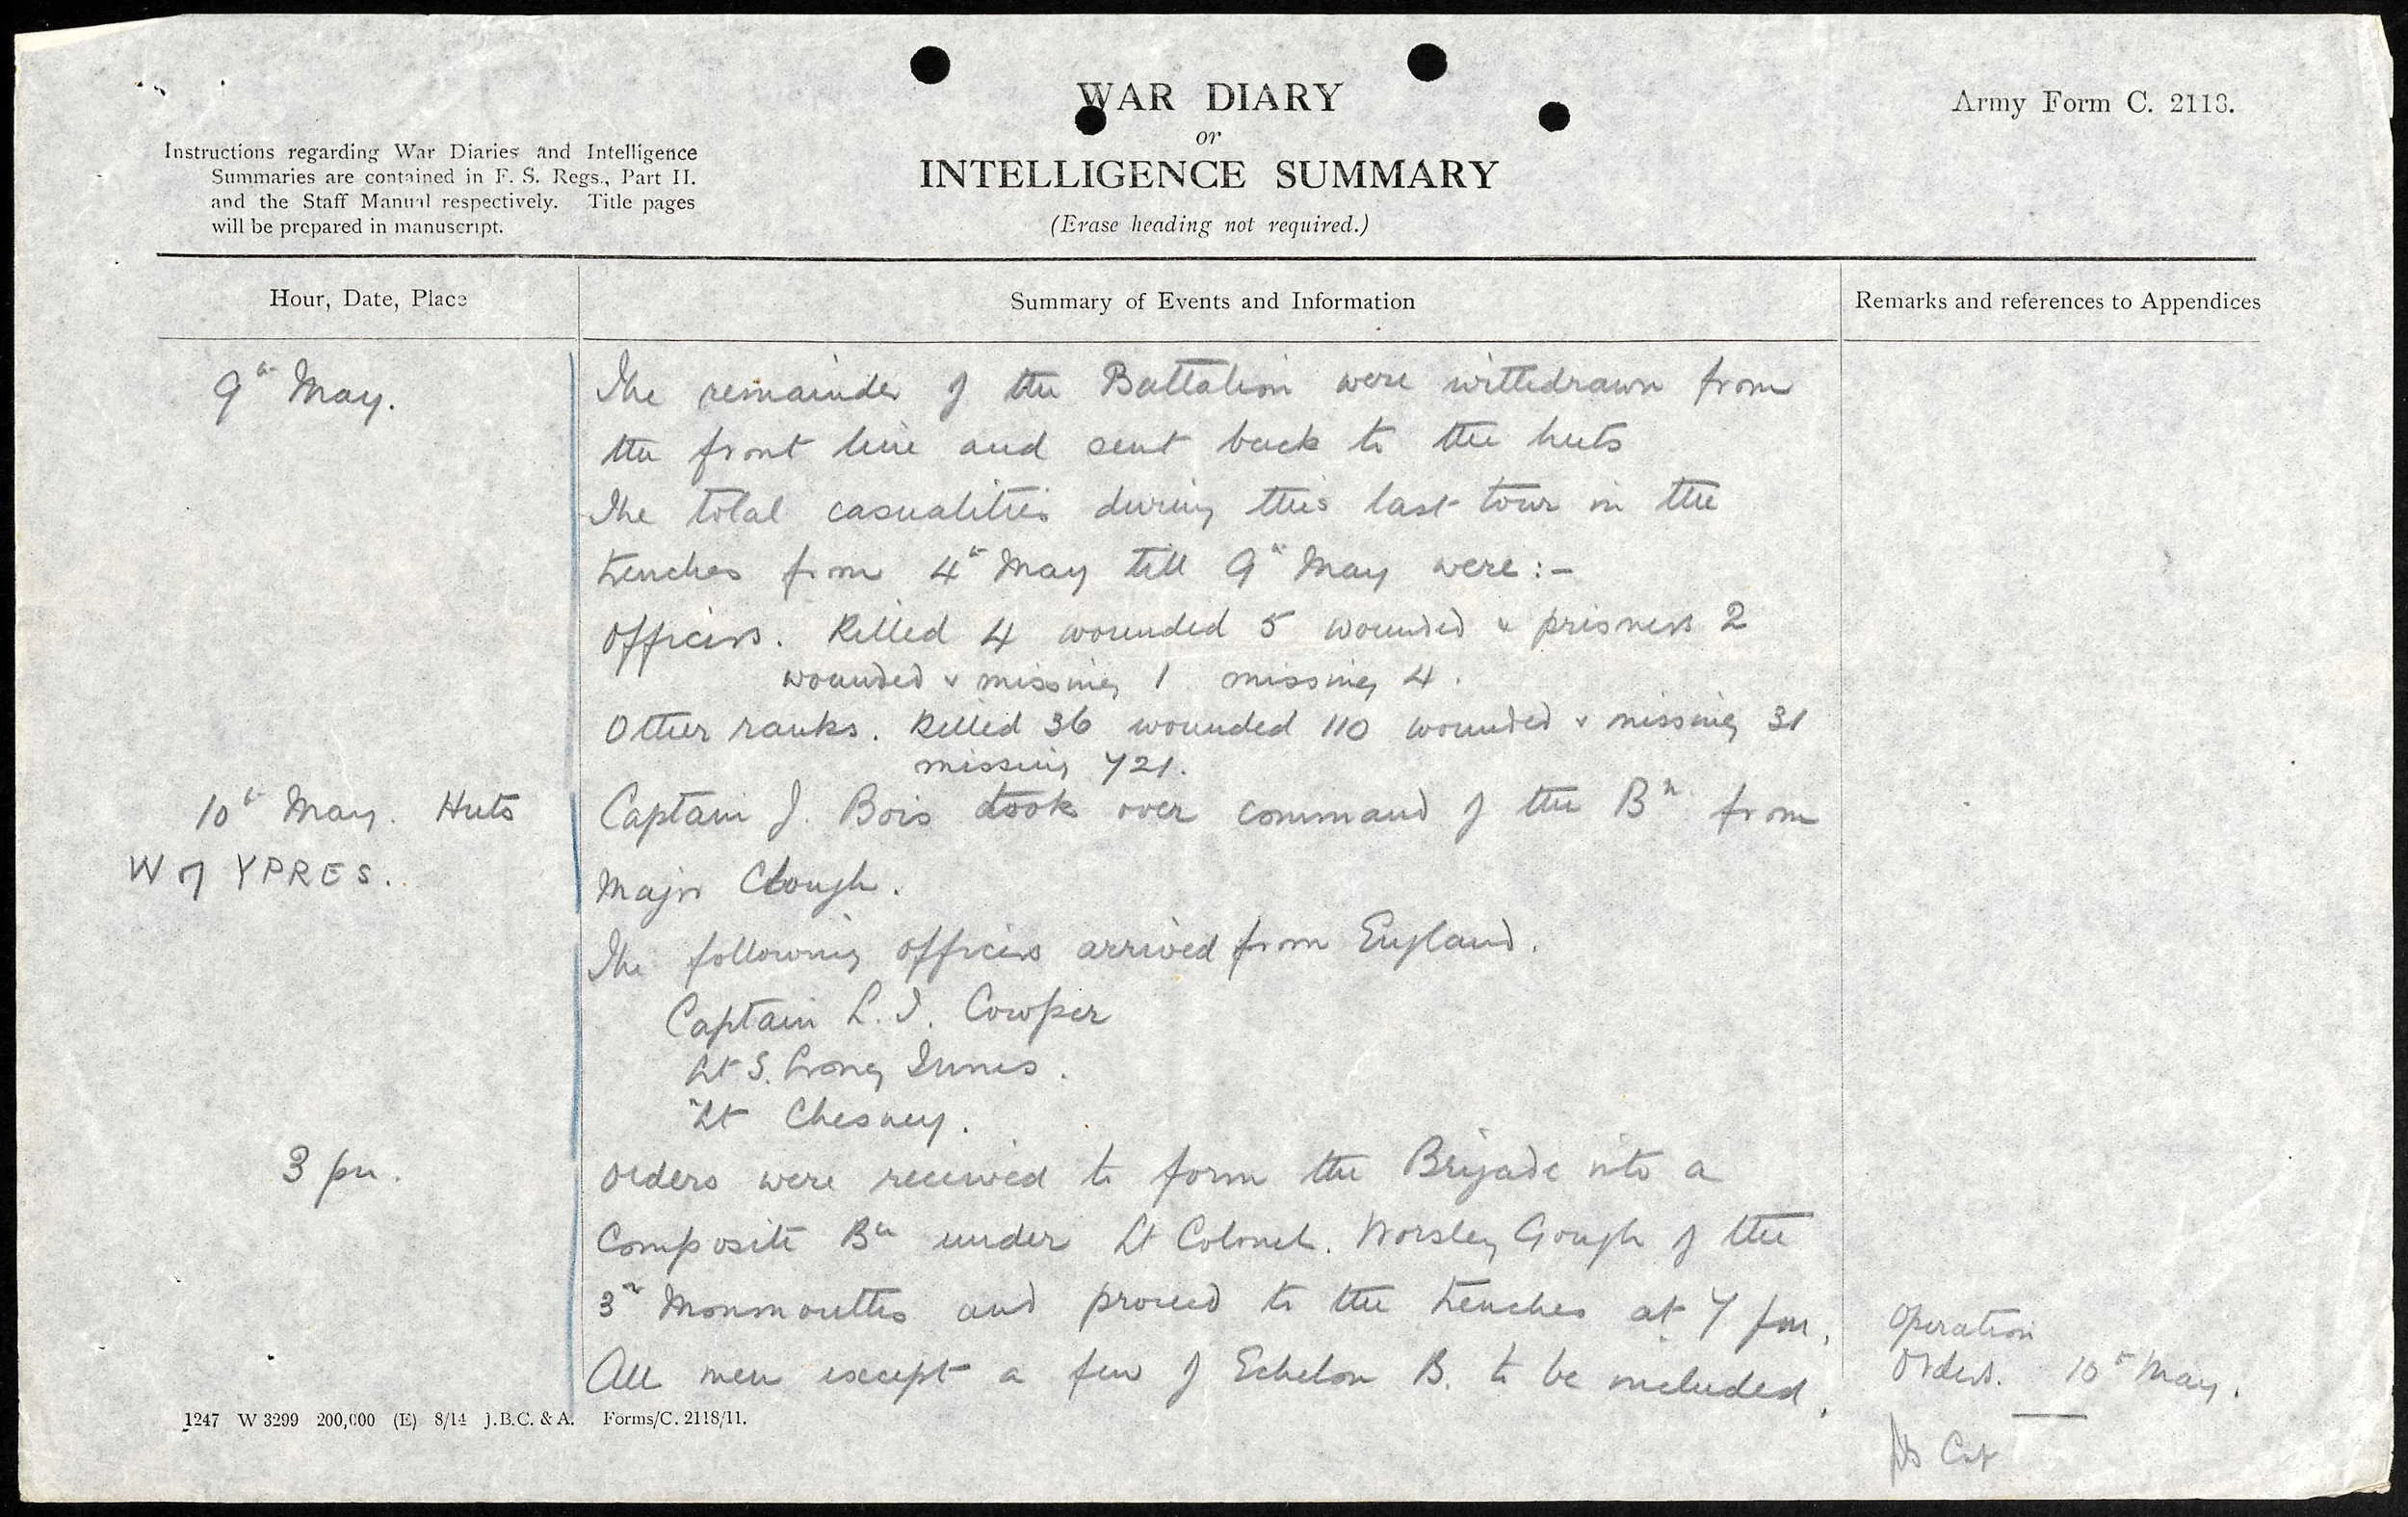 WAR DIARY
or
INTELLIGENCE SUMMARY
(Erase heading not required.)
Army Form C. 2118.
Instructions regarding War Diaries and Intelligence
Summaries are contained in F. S. Regs., Part II.
and the Staff Manual respectively. Title pages
will be prepared in manuscript.
Hour, Date, Place
Summary of Events and Information
Remarks and references to Appendices
9th May.
The remainder of the Battalion were withdrawn from
the front line and sent back to the huts
The total casualities during this last tour in the
trenches from 4th May till 9th May were :-
Officers. Killed 4 wounded 5 wounded & prisoners 2
wounded & missing 1 missing 4.
Other ranks. Killed 36 wounded 110 wounded & missing 31
missing 721.
10th May. Huts
W of YPRES.
Captain J. Bois took over command of the Bn from
Major Clough.
The following officers arrived from England.
Captain L. I. Cowper
Lt S. Long Innes.
Lt Chesney.
3 pm.
Orders were received to form the Brigade into a
Composite Bn under Lt Colonel. Worsley Gough of the
3rd Monmouths and proceed to the trenches at 7 pm.
All men except a few of Echelon B. to be included.
Operation
Orders. 10th May.
1247 W 3299 200,000 (E) 8/14 J.B.C. & A. Forms/C. 2118/11.